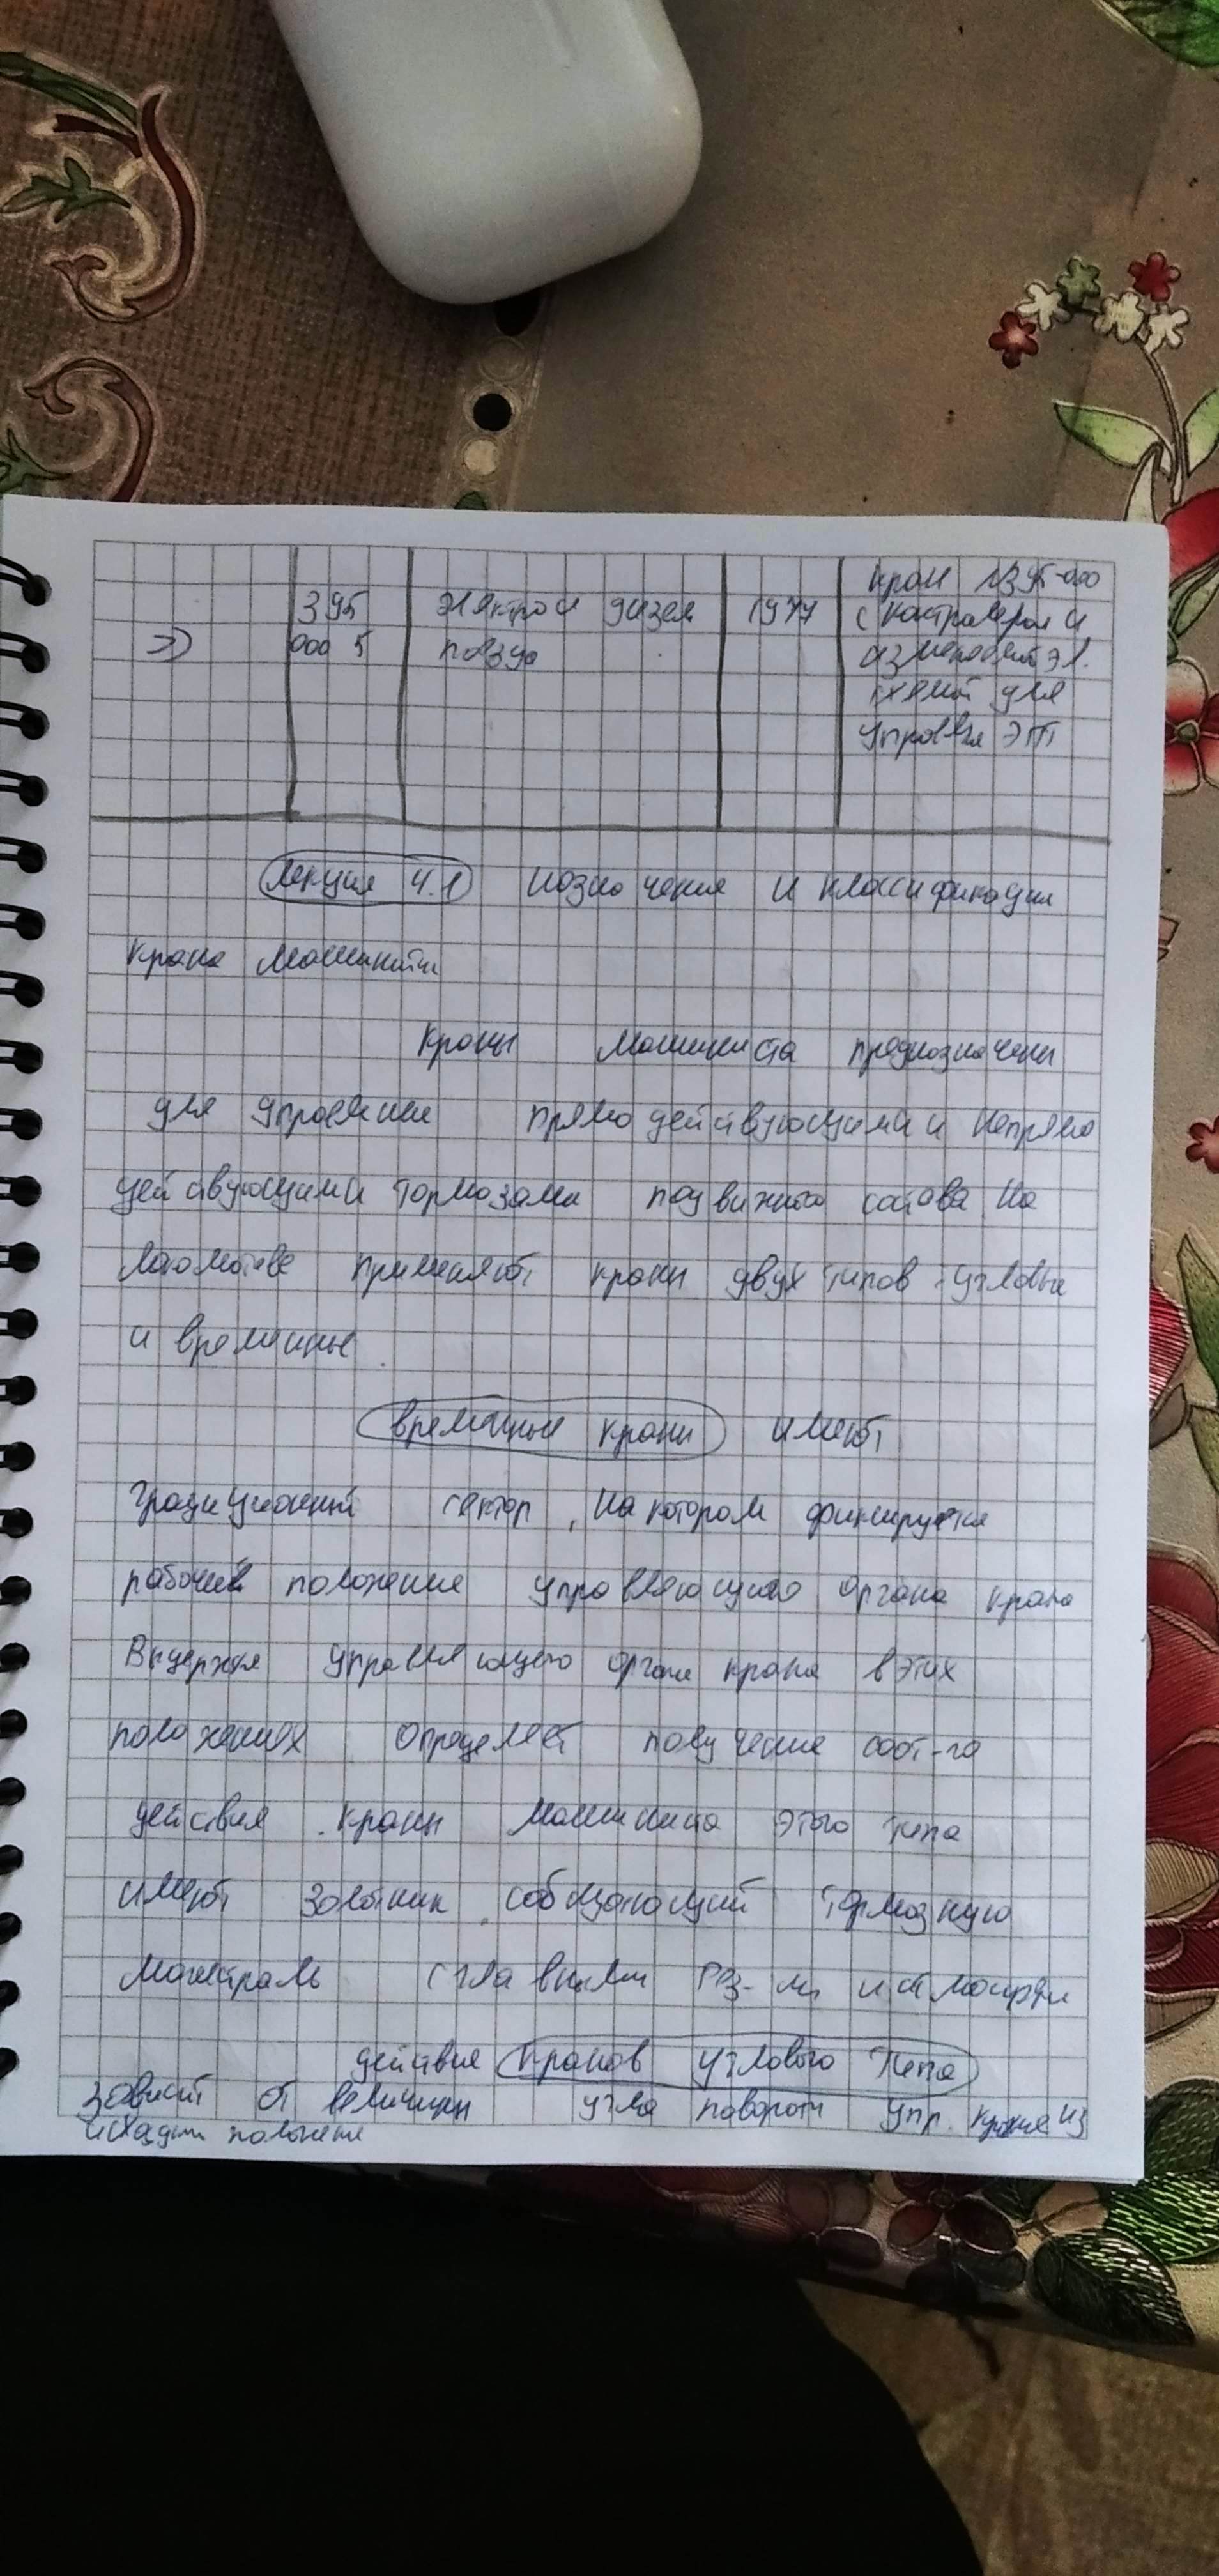 395 электро и дизел 1977 кран 1395-000
с контролером и
>> 000 5 поезда эл.
схемой для
ЭПТ
Лекция 4.1 Назначения и классификации
крана машинисти
Краны машиниста предназначены
для управлении прямодействующими и непрямо
действующими тормозами подвижного состава. На
локомотиве применяют краны двух типов: угловые
и времиные.
времиные краны имеют
сектор, на котором фиксируетя
рабочий положение управляющиго органа крана
управляющего органа крана в этих
положениях определяет получение соот-го
действия. Краны машиниста этого типа
имеют золотник, собщающий тормозную
магистраль с главными рез-ми и
действие кранов углового типа
зависит от величины угла повороти упр. из
положения